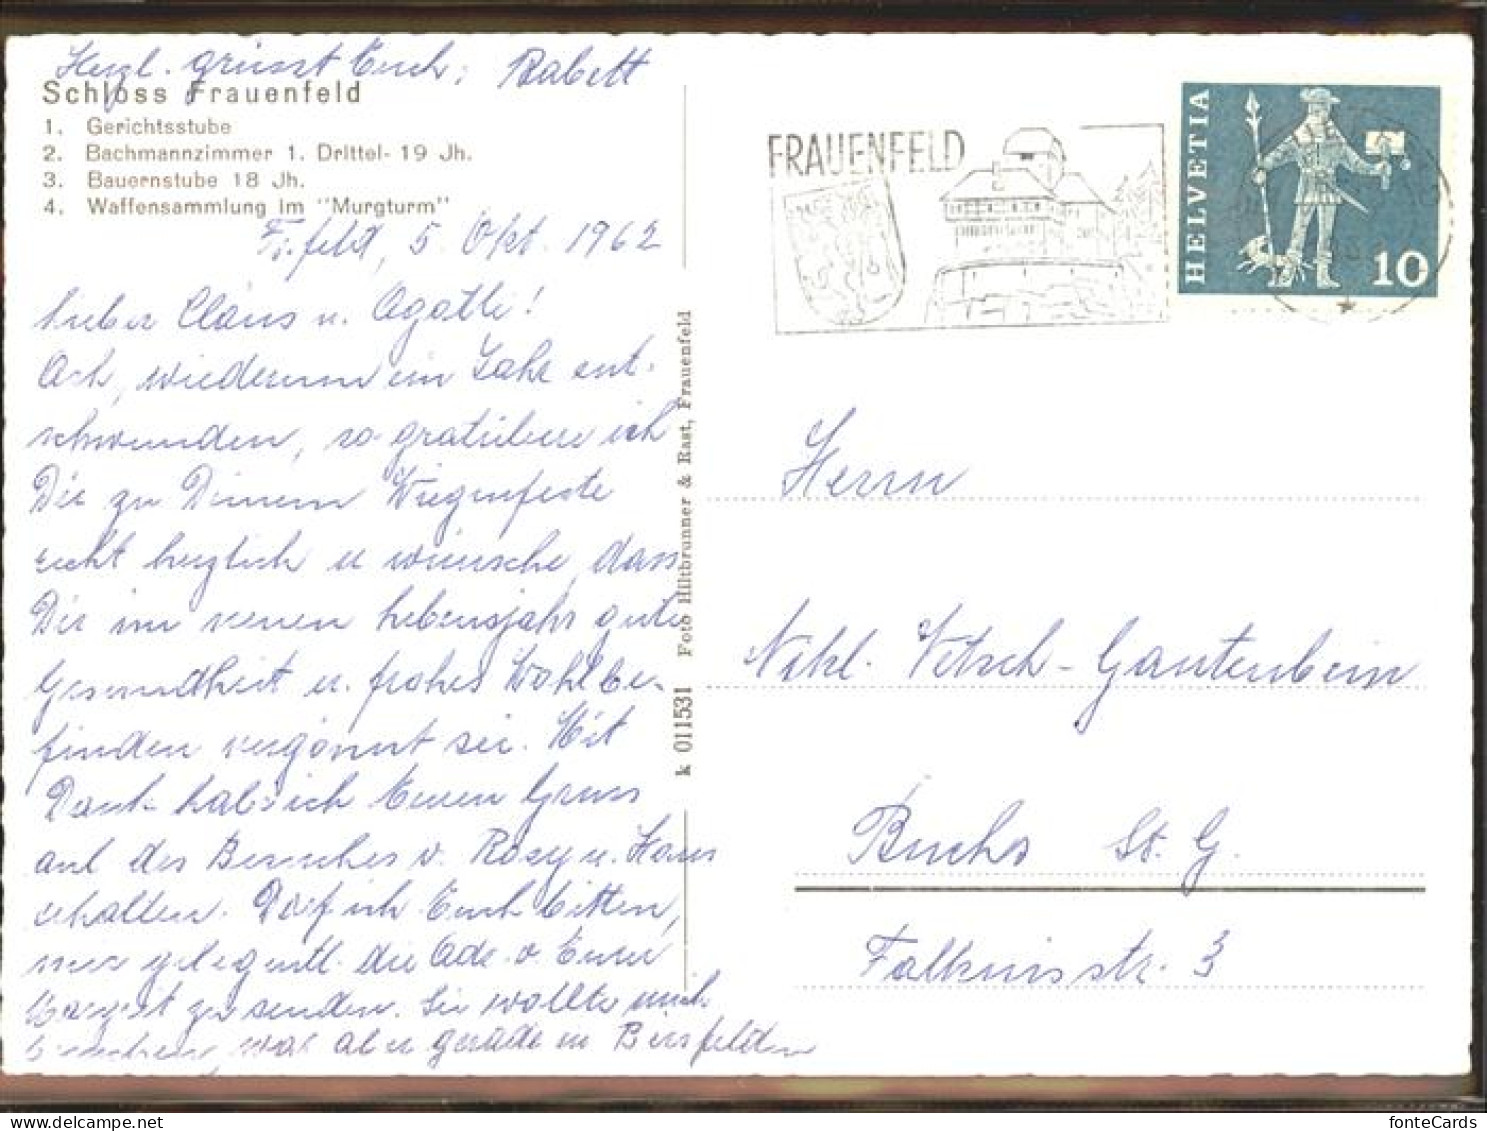 Herzl. grüsst Euch: Babett
Schloss Frauenfeld
1. Gerichtsstube
2. Bachmannzimmer 1. Drittel- 19 Jh.
3. Bauernstube 18 Jh.
4. Waffensammlung im "Murgturm"
Fr.feld, 5. Okt. 1962
Lieber Claus u. Agathe!
Ach, wiederum ein Jahr ent-
schwunden, so gratuliere ich
Dir zu Deinem Wiegenfeste
recht herzlich u wünsche, dass
Dir im neuen Lebensjahr gute
Gesundheit u. frohes Wohlbe-
finden vergönnt sei. Mit
Dank habe ich Euren Gruss
anl. des Besuches v. Rösy u. Hans
erhalten. Darf ich Euch bitten,
mir gelegentl. die Adr. v. Eurer
Margrit zu senden. Sie wollte mich
besuchen, war aber gerade in Birsfelden
k 011531 Foto Hiltbrunner & Rast, Frauenfeld
FRAUENFELD
HELVETIA
10
Herrn
Nikl. Vetsch-Gantenbein
Buchs St. G.
Falknisstr. 3
fonteCards